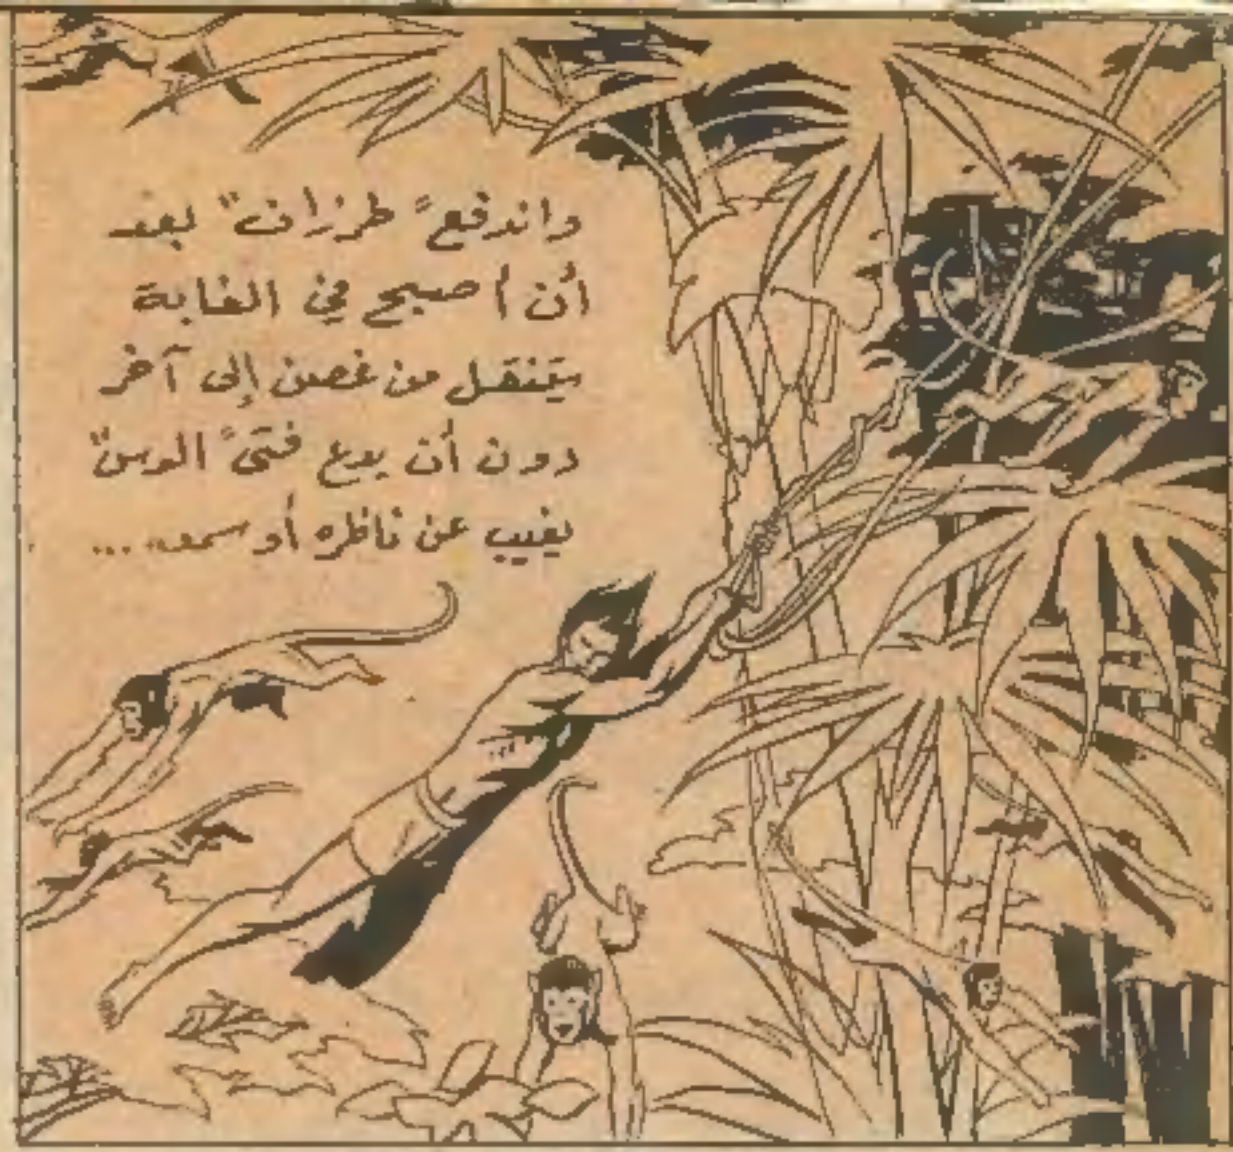 واندفع "طرزان" بعد
أن أصبح في الغابة
يتنقل من غصن إلى آخر
دون أن يدع فتى "الوس"
يغيب عن ناظره أو سمعه...